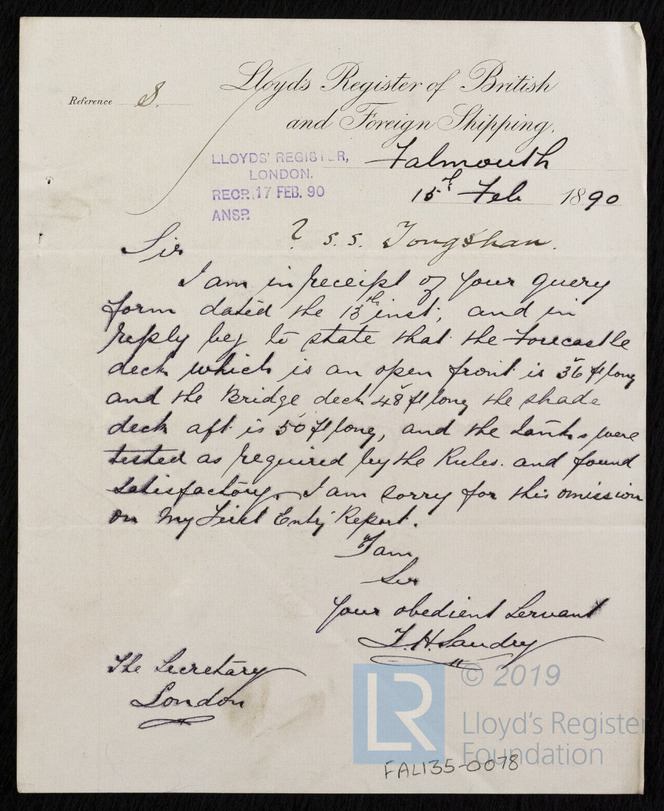 Lloyds Register of British
and Foreign Shipping.
Reference 8.
LLOYDS' REGISTER,
LONDON.
RECR. 17 FEB. 90
ANSR.
Falmouth
15th Feb 1890
? S.S. Tongshan.
Sir
I am in receipt of your query
form dated the 13th inst, and in
reply beg to state that the Forecastle
deck which is an open front is 36 ft long
and the Bridge deck 48 ft long the shade
deck aft is 50 ft long, and the tanks were
tested as required by the Rules. and found
satisfactory. I am sorry for this omission
on my First Entry Report.
I am
Sir
Your obedient Servant
The Secretary
London
© 2019
LR
Lloyd's Register
Foundation
FAL135-0078